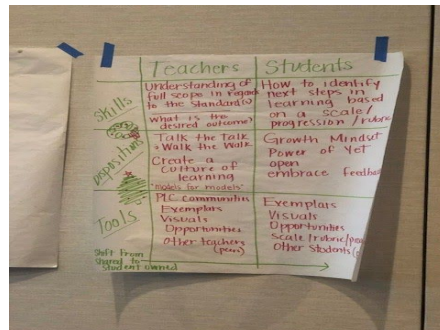 Teachers Students
Skills
Understanding of
full scope in regards
to the Standard(s)
What is the
desired outcome?
How to identify
next steps in
learning based
on a scale/
progression/rubric
Dispositions
Talk the Talk
Walk the Walk
Create a
culture of
learning
"models for models"
Growth Mindset
Power of Yet
open
embrace feedba
Tools
PLC communities
Exemplars
Visuals
Opportunities
other teachers
(peers)
Exemplars
Visuals
Opportunities
Scale/rubric/
Other Students
Shift from
shared to
student owned